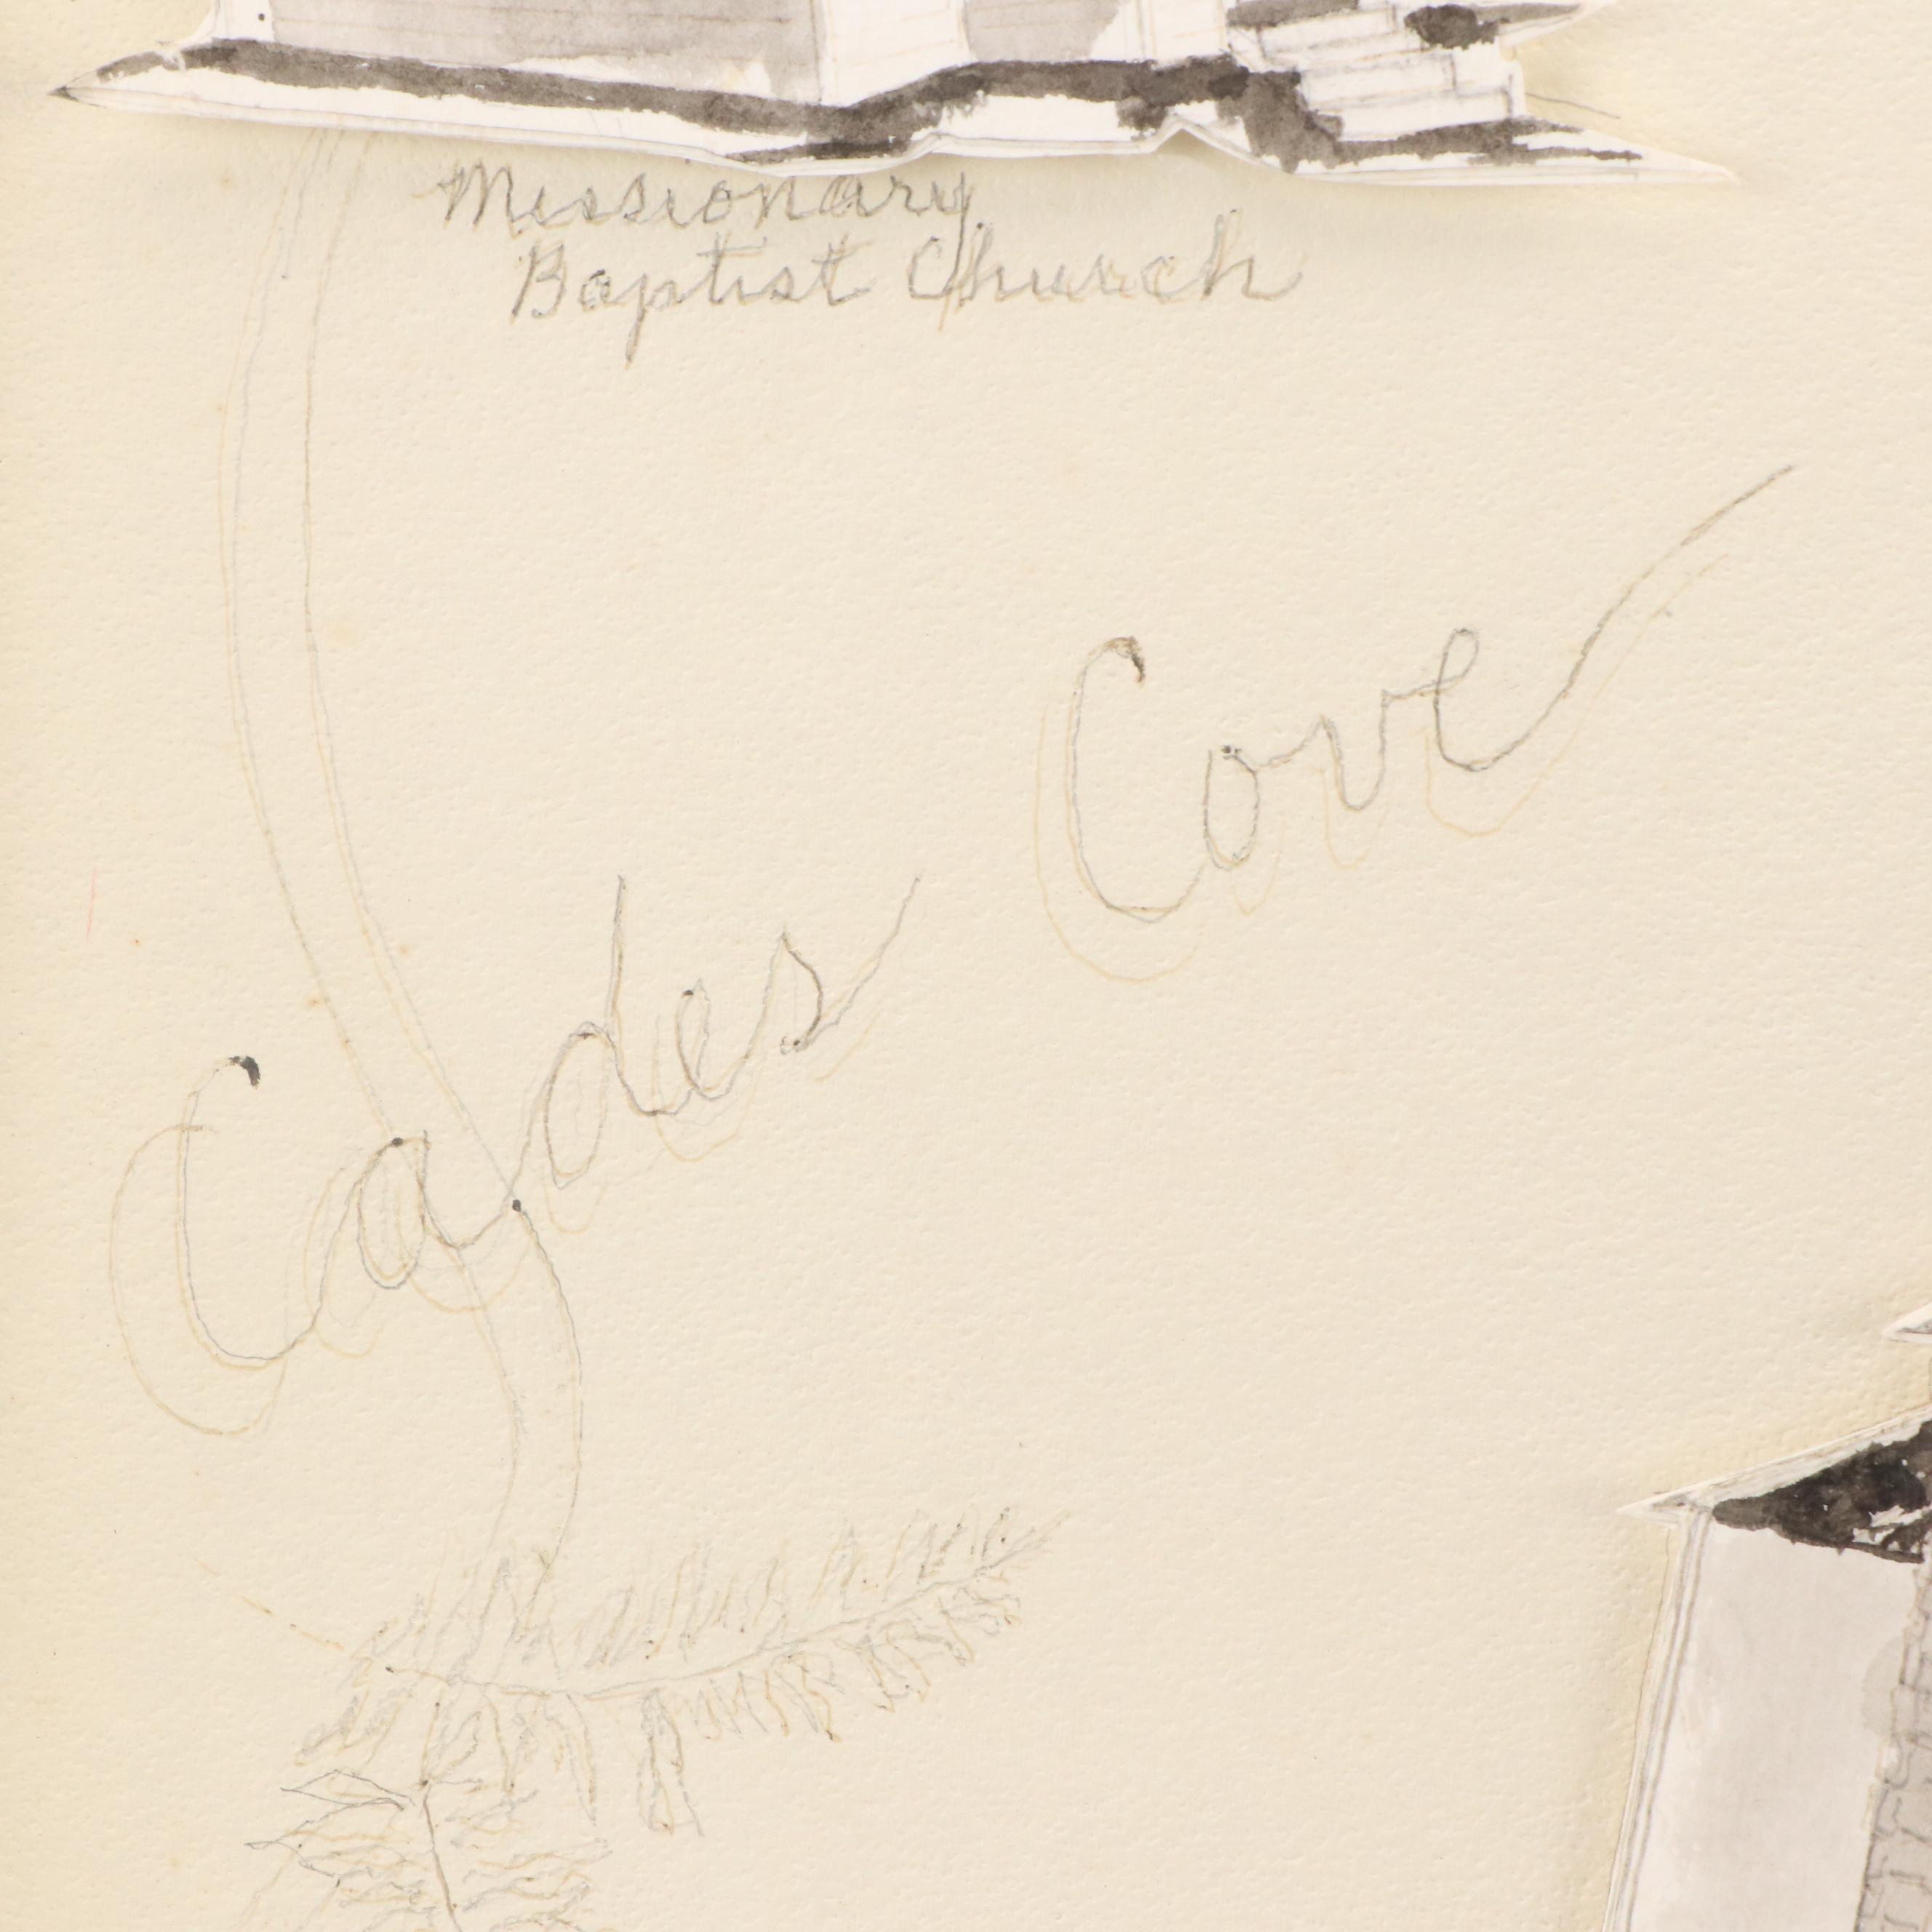 Missionary
Baptist Church
Cades Cove